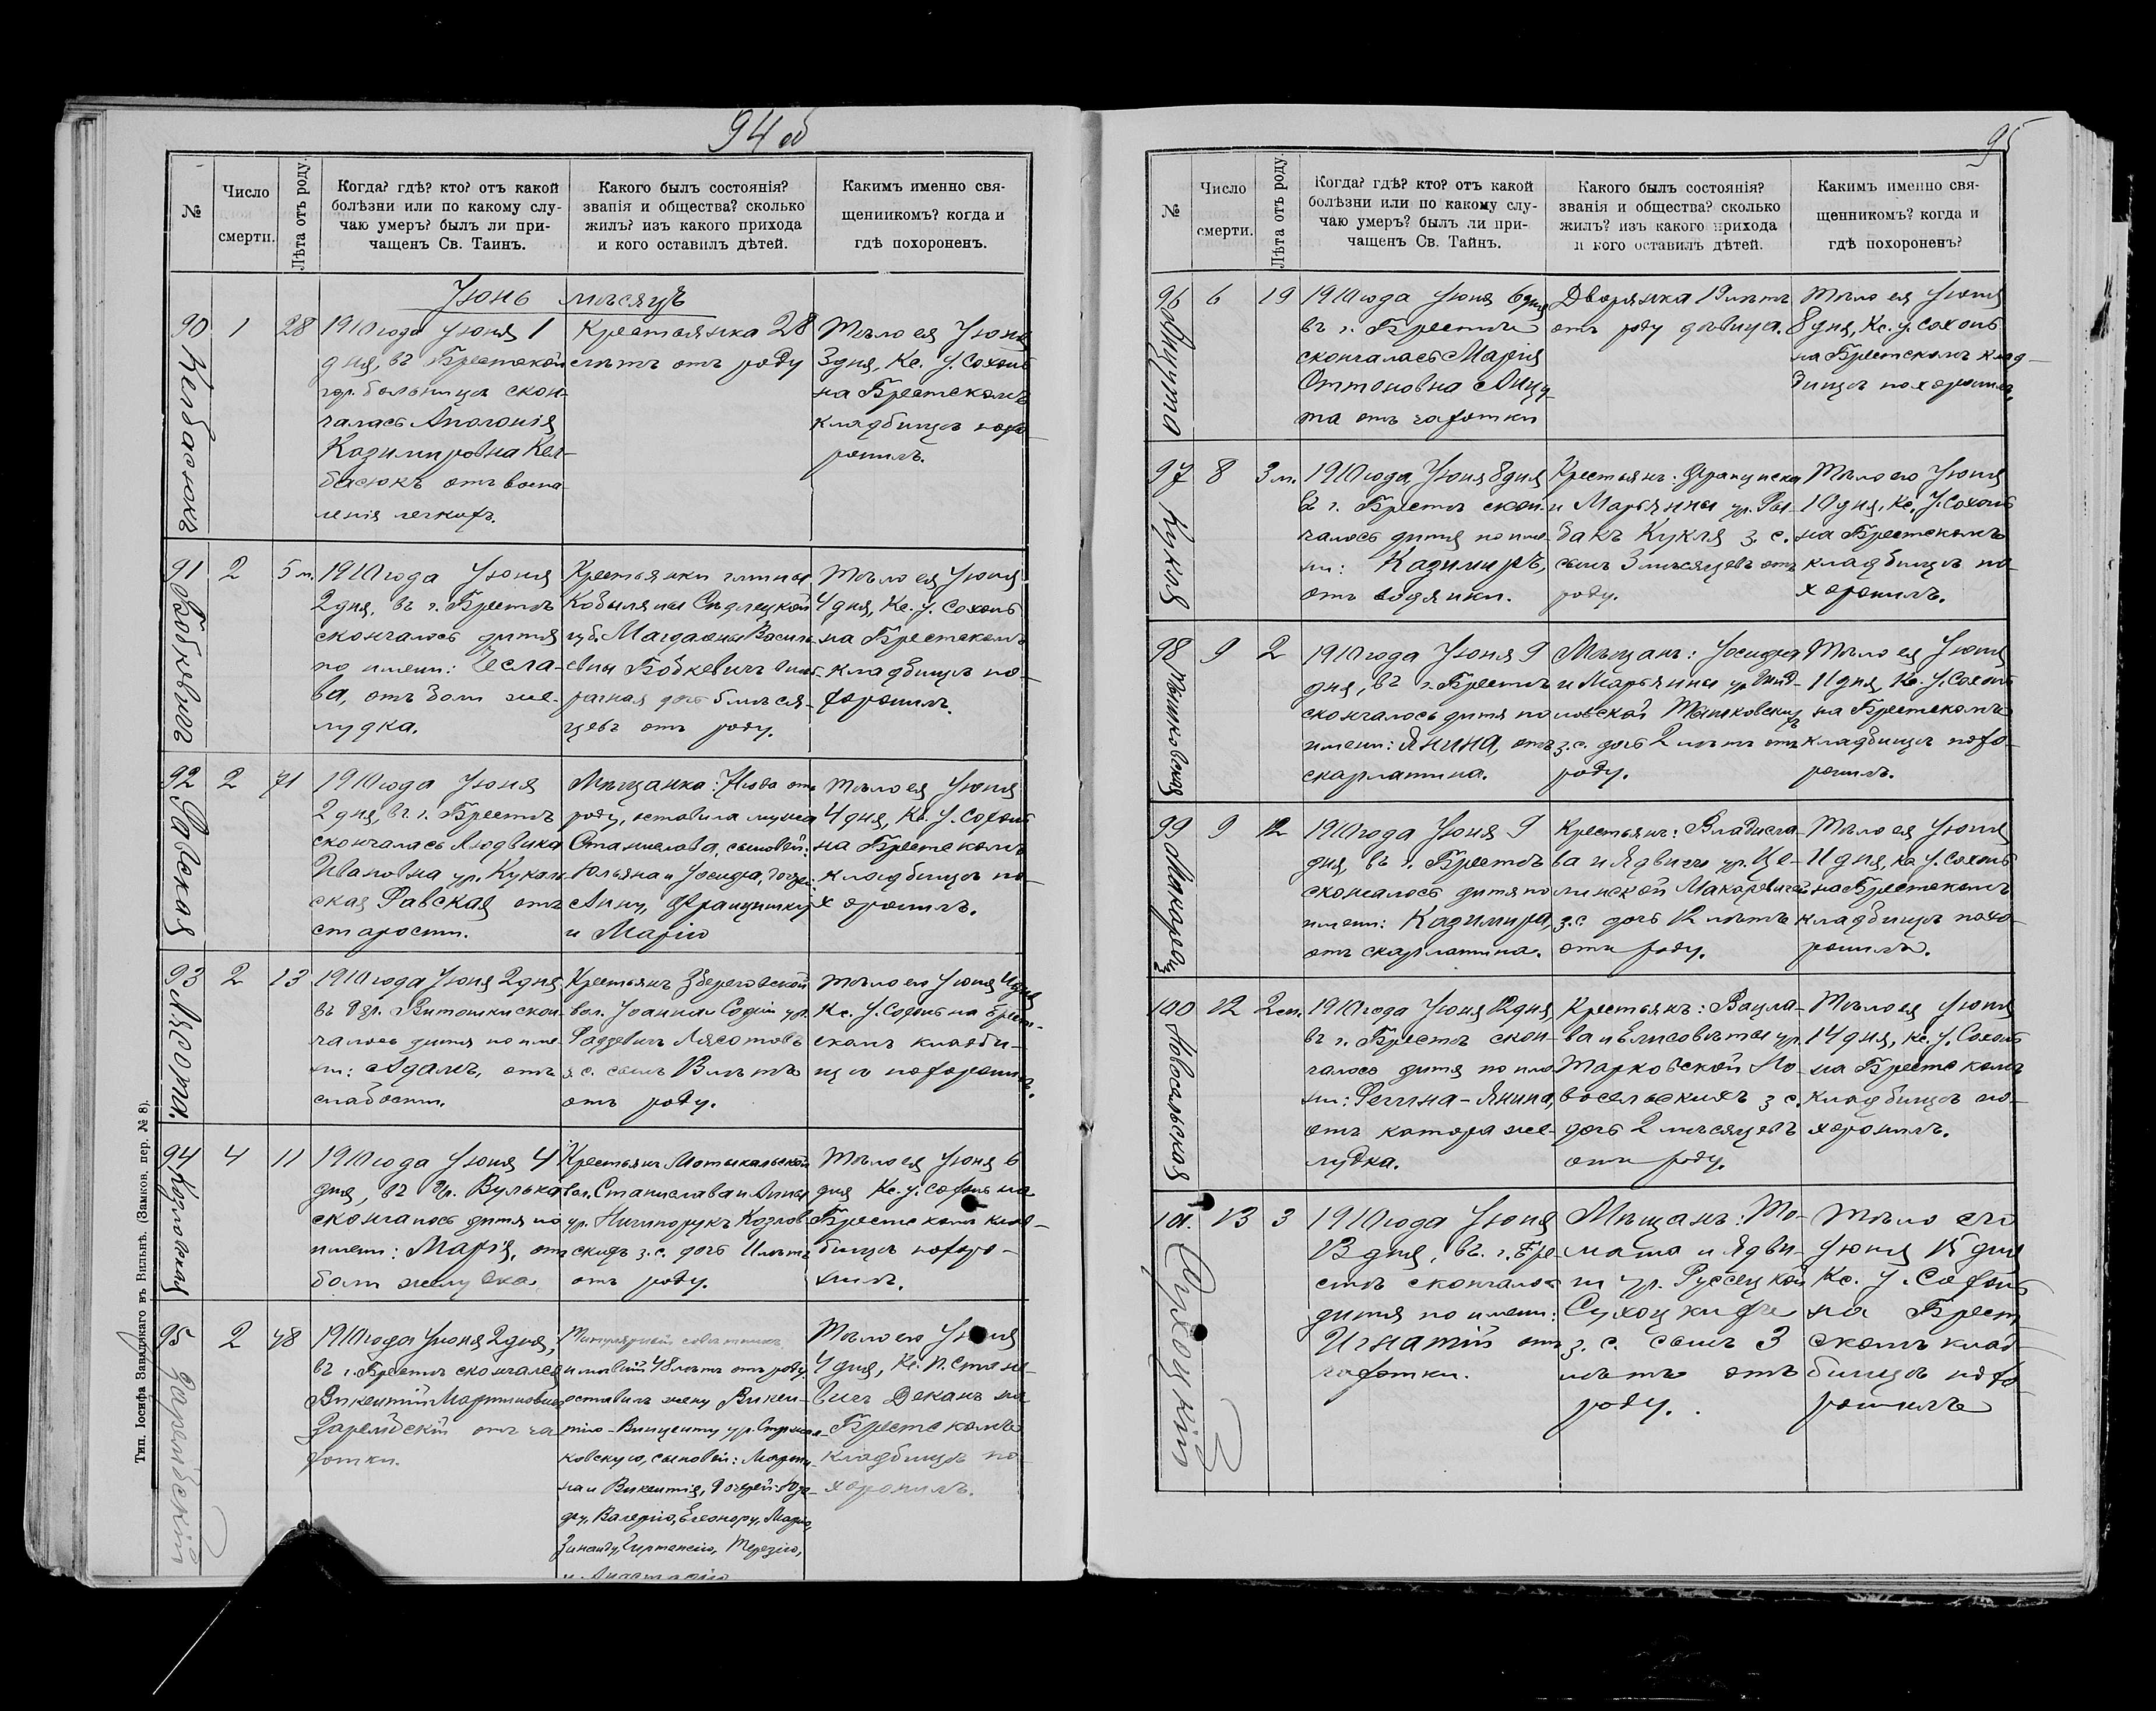 94 об
№
Число
смерти.
Лѣта отъ роду.
Когда? гдѣ? кто? отъ какой
болѣзни или по какому слу-
чаю умеръ? былъ ли при-
чащенъ Св. Таинъ.
Какого былъ состоянія?
званія и общества? сколько
жилъ? изъ какого прихода
и кого оставилъ дѣтей.
Какимъ именно свя-
щенникомъ? когда и
гдѣ похороненъ.
Іюнь мѣсяцъ
90
1
28
1910 года Іюня 1
дня, въ Брестской
гор. больницѣ скон-
чалась Аполонія
Казимировна Кел-
басюкъ отъ воспа-
ленія легкихъ.
Крестьянка 28
лѣтъ отъ роду
Тѣло ея Іюня
3 дня, Кс. У. Сохонь
на Брестскомъ
кладбищѣ похо-
ронилъ.
91 Бобкевичъ
2
5 м.
1910 года Іюня
2 дня, въ г. Брестѣ
скончалось дитя
по имени: Чесла-
ва, отъ боли же-
лудка.
Крестьянки гмины
Кобыляны Сидлецкой
губ. Магдалены Василь-
евны Бобкевичъ внѣб-
рачная дочь 5 мѣся-
цевъ отъ роду.
Тѣло ея Іюня
4 дня, Кс. У. Сохонь
на Брестскомъ
кладбищѣ по-
хоронилъ.
92 Равская
2
71
1910 года Іюня
2 дня, въ г. Брестѣ
скончалась Людвика
Ивановна ур. Кукаль
ская Равская отъ
старости.
Мѣщанка: 71 года отъ
роду, оставила мужа
Станислава, сыновей:
Юльяна и Іосифа, дочерей:
Анну, Францишку
и Марію
Тѣло ея Іюня
4 дня, Кс. У. Сохонь
на Брестскомъ
кладбищѣ по-
хоронилъ.
93 Лясота.
2
13
1910 года Іюня 2 дня
въ дер. Витошки скон-
чалось дитя по име-
ни: Адамъ, отъ
слабости.
Крестьянъ Збероговской
вол. Іоанна и Софіи ур.
Фаддевичъ Лясотовъ
з. с. сынъ 13 лѣтъ
отъ роду.
Тѣло его Іюня 4 дня
Кс. У. Сохонь на Брест-
скомъ кладби-
щѣ похоронилъ.
94 Козловская
4
11
1910 года Іюня 4
дня, въ др. Вулька
скончалось дитя по
имени: Марія, отъ
боли желудка.
Крестьянъ Мотыкальской
вол. Станислава и Анны
ур. Ничипорукъ Козлов-
скихъ з. с. дочь 11 лѣтъ
отъ роду.
Тѣло ея Іюня 6
дня Кс. У. Сохонь на
Брестскомъ клад-
бищѣ похоро-
нилъ.
95
2
48
1910 года Іюня 2 дня,
въ г. Брестѣ скончался
Викентій Мартиновичъ
отъ ча
хотки.
Титулярный совѣтникъ
имѣвшій 48 лѣтъ отъ роду
оставилъ жену Викен-
тію-Винценту
ковскую, сыновей: Марти-
на и Викентія, дочерей:
Валерію, Елеонору, Марію,
Терезію,
и Анастасію
Тѣло его Іюня
4 дня, Кс.
Деканъ на
Брестскомъ
кладбищѣ по-
хоронилъ.
Тип. Іосифа Завадзкаго въ Вильнѣ. (Замков. пер. № 8).
95
№
Число
смерти.
Лѣта отъ роду.
Когда? гдѣ? кто? отъ какой
болѣзни или по какому слу-
чаю умеръ? былъ ли при-
чащенъ Св. Тайнъ.
Какого былъ состоянія?
званія и общества? сколько
жилъ? изъ какого прихода
и кого оставилъ дѣтей.
Какимъ именно свя-
щенникомъ? когда и
гдѣ похороненъ?
96 Анцута
6
19
1910 года Іюня 6 дня
въ г. Брестѣ
скончалась Марія
Оттоновна Анцу-
та отъ чахотки
Дворянка 19 лѣтъ
отъ роду дѣвица.
Тѣло ея Іюня
8 дня, Кс. У. Сохонь
на Брестскомъ клад-
бищѣ похоронилъ.
97 Кукля
8
3 м.
1910 года, Іюня 8 дня
въ г. Брестѣ скон-
чалось дитя по име-
ни: Казимиръ,
отъ водянки.
Крестьянъ: Франциска
и Марьянны ур. Ры-
бакъ Кукля з. с.
сынъ 3 мѣсяцевъ отъ
роду.
Тѣло его Іюня
10 дня, Кс. У. Сохонь
на Брестскомъ
кладбищѣ по-
хоронилъ.
98
9
2
1910 года Іюня 9
дня, въ г. Брестѣ
скончалось дитя по
имени: Янина, отъ
скарлатина.
Мѣщанъ: Іосифа
и Марьянны ур. Шид-
ловской
з. с. дочь 2 лѣтъ отъ
роду.
Тѣло ея Іюня
11 дня, Кс. У. Сохонь
на Брестскомъ
кладбищѣ похо-
ронилъ.
99
9
12
1910 года Іюня 9
дня, въ г. Брестѣ
скончалось дитя по
имени: Казимира,
отъ скарлатина.
Крестьянъ: Владисла-
ва и Ядвиги ур. Це-
линской Макаревичей
з. с. дочь 12 лѣтъ
отъ роду.
Тѣло ея Іюня
11 дня, Кс. У. Сохонь
на Брестскомъ
кладбищѣ похо-
ронилъ.
100 Новосельская
12
2 м.
1910 года Іюня 12 дня,
въ г. Брестѣ скон-
чалось дитя по име-
ни: Регина-Янина,
отъ катора же-
лудка.
Крестьянъ: Вацла-
ва и Елисоветы ур.
Марковской Но-
восельскихъ з. с.
дочь 2 мѣсяцевъ
отъ роду.
Тѣло ея Іюня
14 дня, Кс. У. Сохонь
на Брестскомъ
кладбищѣ по-
хоронилъ.
101. Сухоцкій
13
3
1910 года Іюня
13 дня, въ г. Бре-
стѣ скончалось
дитя по имени:
Игнатій отъ
чахотки.
Мѣщанъ: То-
маша и Ядви-
ги ур. Руссецкой
Сухоцкихъ
з. с. сынъ 3
лѣтъ отъ
роду.
Тѣло его
Іюня 15 дня
Кс. У. Сохонь
на Брест
скомъ клад-
бищѣ похо
ронилъ